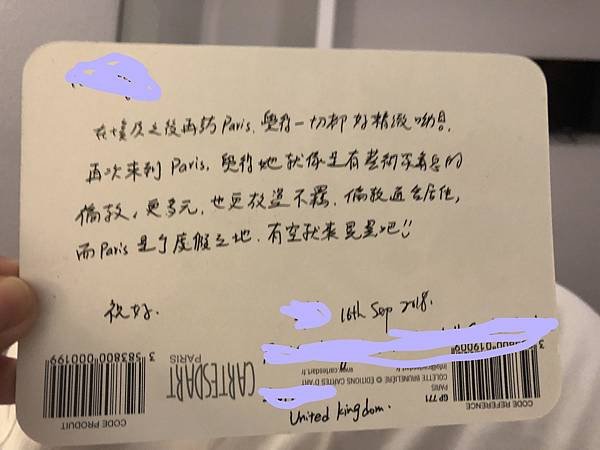 在埃及之後再訪Paris, 覺得一切都好精緻呦!
再次來到Paris, 覺得她就像是有藝術家氣息的
倫敦, 更多元, 也更放盪不羈, 倫敦適合居住,
而Paris是個度假之地, 有空就來晃晃吧!!
祝好.
16th Sep 2018.
United kingdom.
3 583800 000199
CODE PRODUIT
CARTESDART
PARIS
www.cartesdart.fr
COLETTE BRUNELIÈRE © EDITIONS CARTES D'ART
PARIS
GP 771
CODE REFERENCE